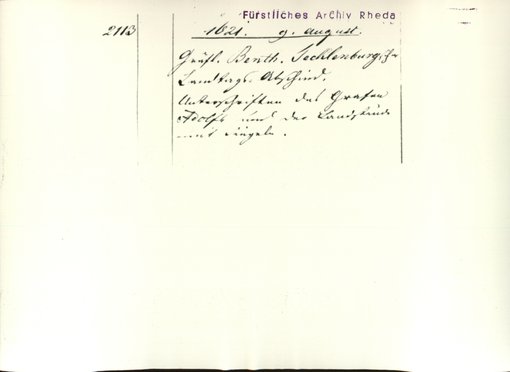 Fürstliches Archiv Rheda
2113
1621. 9. August.
Gräfl. Benth. Tecklenburgischer
Landtags Abschied.
Unterschriften des Grafen
Adolfs und der Landstände
mit Siegeln.